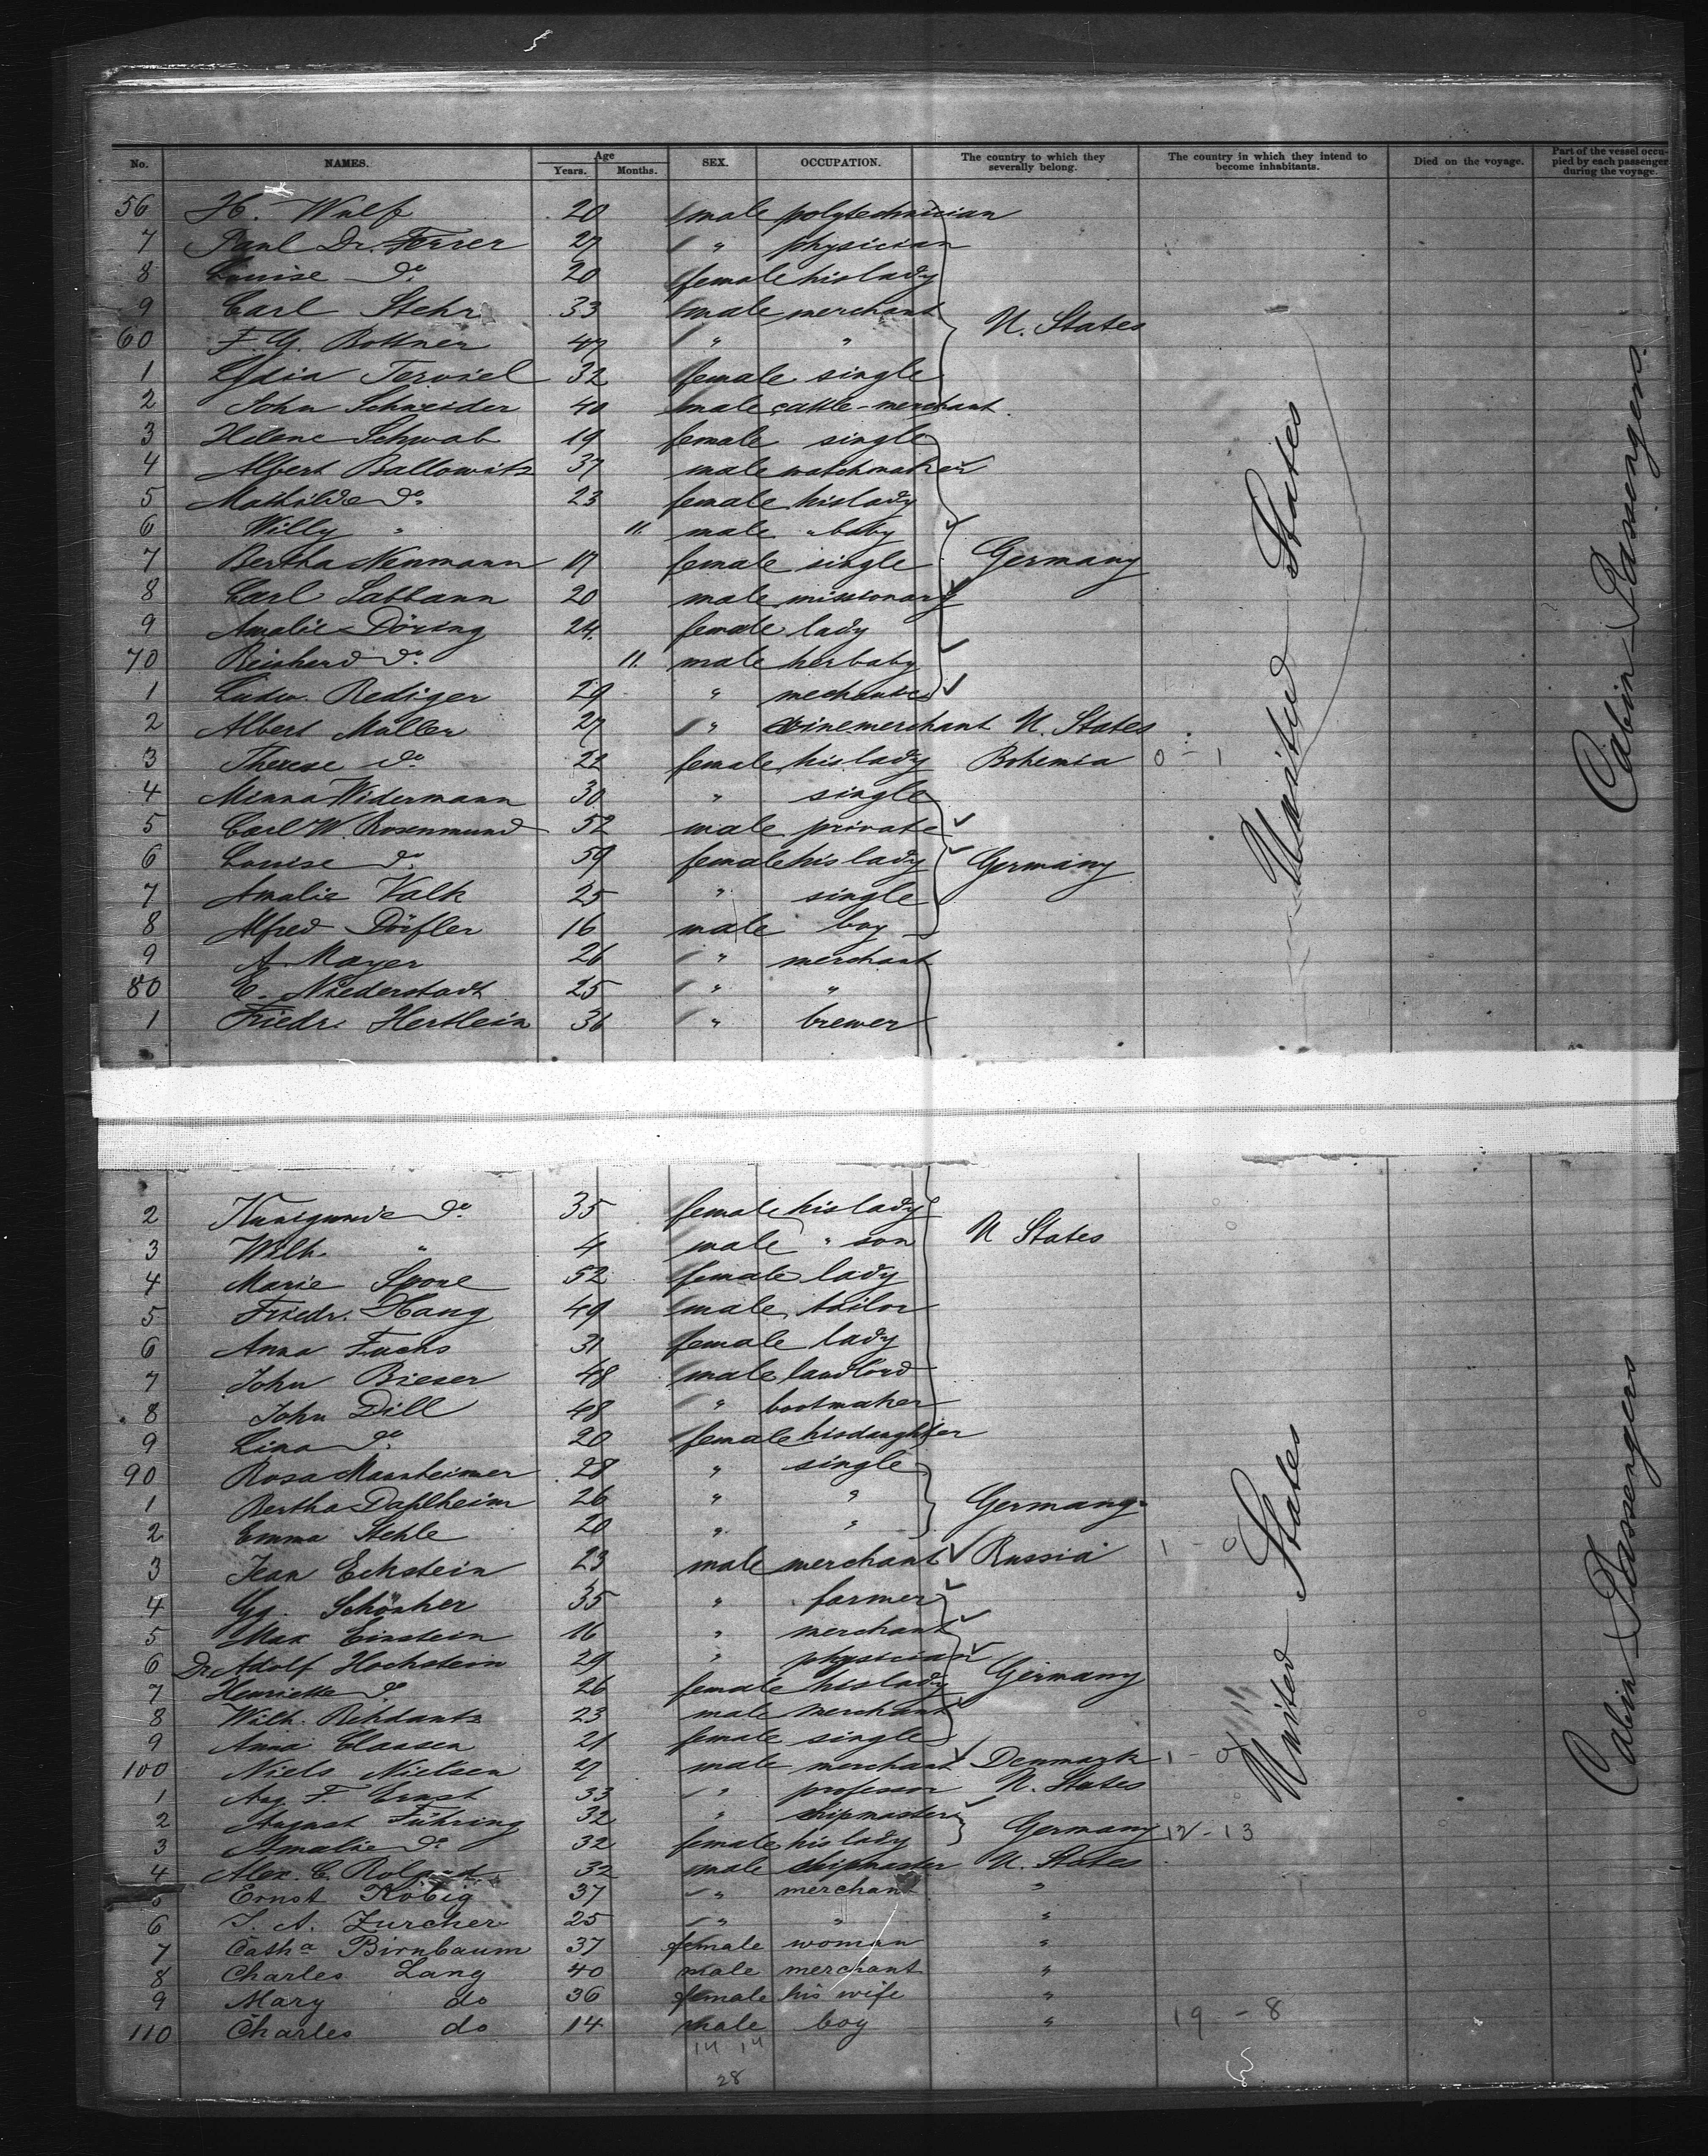 No. NAMES. Age Years. Months. SEX. OCCUPATION. The country to which they severally belong. The country in which they intend to become inhabitants. Died on the voyage. Part of the vessel occupied by each passenger during the voyage.
56 H. Wulf 20 male polytechnician
7 Paul Dr. Forrer 27 " physician
8 Louise do. 20 female his lady
9 Carl Stehr 33 male merchant
U. States
60 F. G. Bottner 47 " "
1 Lydia Terviel 32 female single
2 John Schneider 40 male cattle-merchant
3 Helene Schwab 19 female single
4 Albert Ballowitz 37 male watchmaker
5 Mathilde do. 23 female his lady
6 Willy " 11. male " baby
7 Bertha Neumann 17 female single Germany
8 Carl 20 male missionary
9 Amalie Döring 24. female lady
70 Reinhard do. 11. male her baby
1 Ludw. Rediger 29 " mechanic
2 Albert Müller 27 " winemerchant U. States
3 Therese do 22 female his lady Bohemia 0 - 1
4 Minna Widermann 30 " single
5 Carl W. Rosenmund 52 male private
6 Louise do 59 female his lady Germany
7 Amalie Valk 25 " single
8 Alfred Döfler 16 male boy
9 A. Mayer 26 " merchant
80 E. Niederstadt 25 " "
1 Friedr. Hertlein 36 " brewer
United States
Cabin Passengers.
2 Kunigunde do. 35 female his lady
U States
3 Wilh. " 4 male " son
4 Marie Spoxe 52 female lady
5 Friedr. Haug 49 male tailor
6 Anna Fuchs 31 female lady
7 John Bieser 48 male landlord
8 John Dill 48 " bootmaker
9 Lina do. 20 female his daughter
90 Rosa Mannheimer 28 " single
1 Bertha Dahlheim 26 " " Germany
2 Emma Stehle 20 " "
3 Jean Eckstein 23 male merchant Russia 1 - 0
4 Gg. Schönher 35 " farmer
5 Max Einstein 16 " merchant
6 Dr. Adolf Hochstein 29 " physician Germany
7 Henriette do 26 female his lady
8 Wilh. Rehdantz 23 male merchant
9 Anna Claasen 21 female single
100 Niels Nielsen 27 male merchant Denmark 1 - 0
1 Aug. F. Ernst 33 " profesor U. States
2 August Führing 32 " shipmaster
Germany 12 - 13
3 Amalie do 32 female his lady
4 Alex. C. 32 male shipmaster U. States
5 Ernst Köbig 37 " merchant "
6 J. A. Zurcher 25 " " "
7 Catha Birnbaum 37 female woman "
8 Charles Lang 40 male merchant "
9 Mary do 36 female his wife "
110 Charles do 14 male boy " 19 - 8
14 14
28
United States
Cabin Passengers